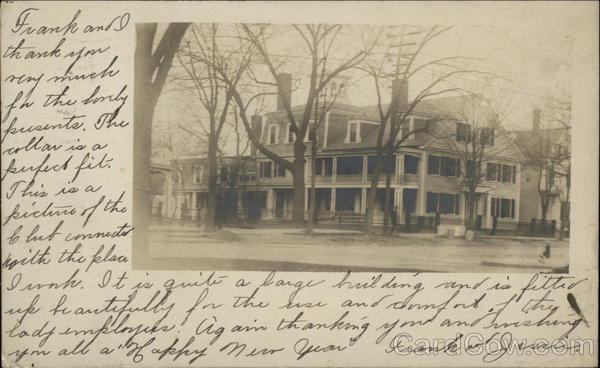 Frank and I
thank you
very much
for the lovely
presents. The
collar is a
perfect fit.
This is a
picture of the
Club connected
with the place
I work. It is quite a large building and is fitted
up beautifully for the use and comfort of the
lady employees. Again thanking you and wishing
you all a "Happy New Year" Frank &
CardCow.com